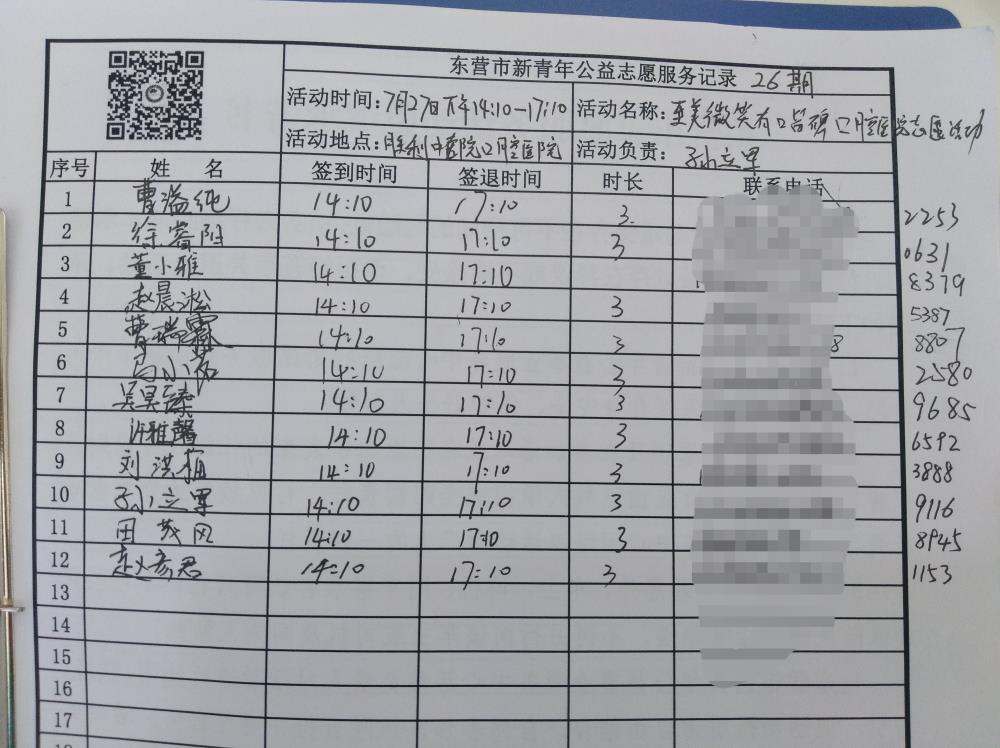 东营市新青年公益志愿服务记录 26期
活动时间:7月27日下午14:10-17:10 活动名称:亚美微笑有口皆碑口腔医院志愿活动
活动地点:胜利中医院口腔医院 活动负责:孙立军
序号 姓名 签到时间 签退时间 时长 联系电话
1 曹溢纯 14:10 17:10 3 2253
2 徐睿阳 14:10 17:10 3 0631
3 董小雅 14:10 17:10 8379
4 赵晨淞 14:10 17:10 3 5387
5 曹瑞霖 14:10 17:10 3 8 8807
6 马小 14:10 17:10 3 2580
7 吴昊臻 14:10 17:10 3 9685
8 许雅馨 14:10 17:10 3 6592
9 刘洪 14:10 17:10 3 3888
10 孙立军 14:10 17:10 3 9116
11 田茂风 14:10 17:10 3 8945
12 赵彦君 14:10 17:10 3 1153
13
14
15
16
17